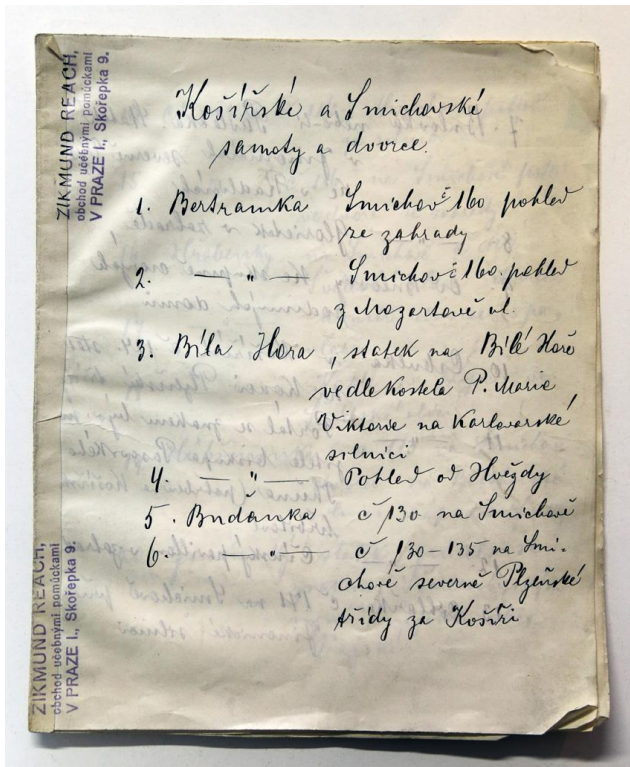 ZIKMUND REACH,
obchod učebnými pomůckami
V PRAZE I., Skořepka 9.
Košířské a Smichovské
samoty a dvorce.
1. Bertramka Smichov č 160 pohled
ze zahrady
2. —— " —— Smichov č 160. pohled
z Mozartově ul.
3. Bíla Hora, statek na Bílé Hoře
vedle kostela P. Marie
Viktorie na Karlovarské
silnici
4. —— " —— Pohled od Hvězdy
5. Buďanka č 130 na Smichově
6. —— " —— č 130-135 na Smi-
chově severně Plzeňské
třídy za Košíři
ZIKMUND REACH,
obchod učebnými pomůckami
V PRAZE I., Skořepka 9.